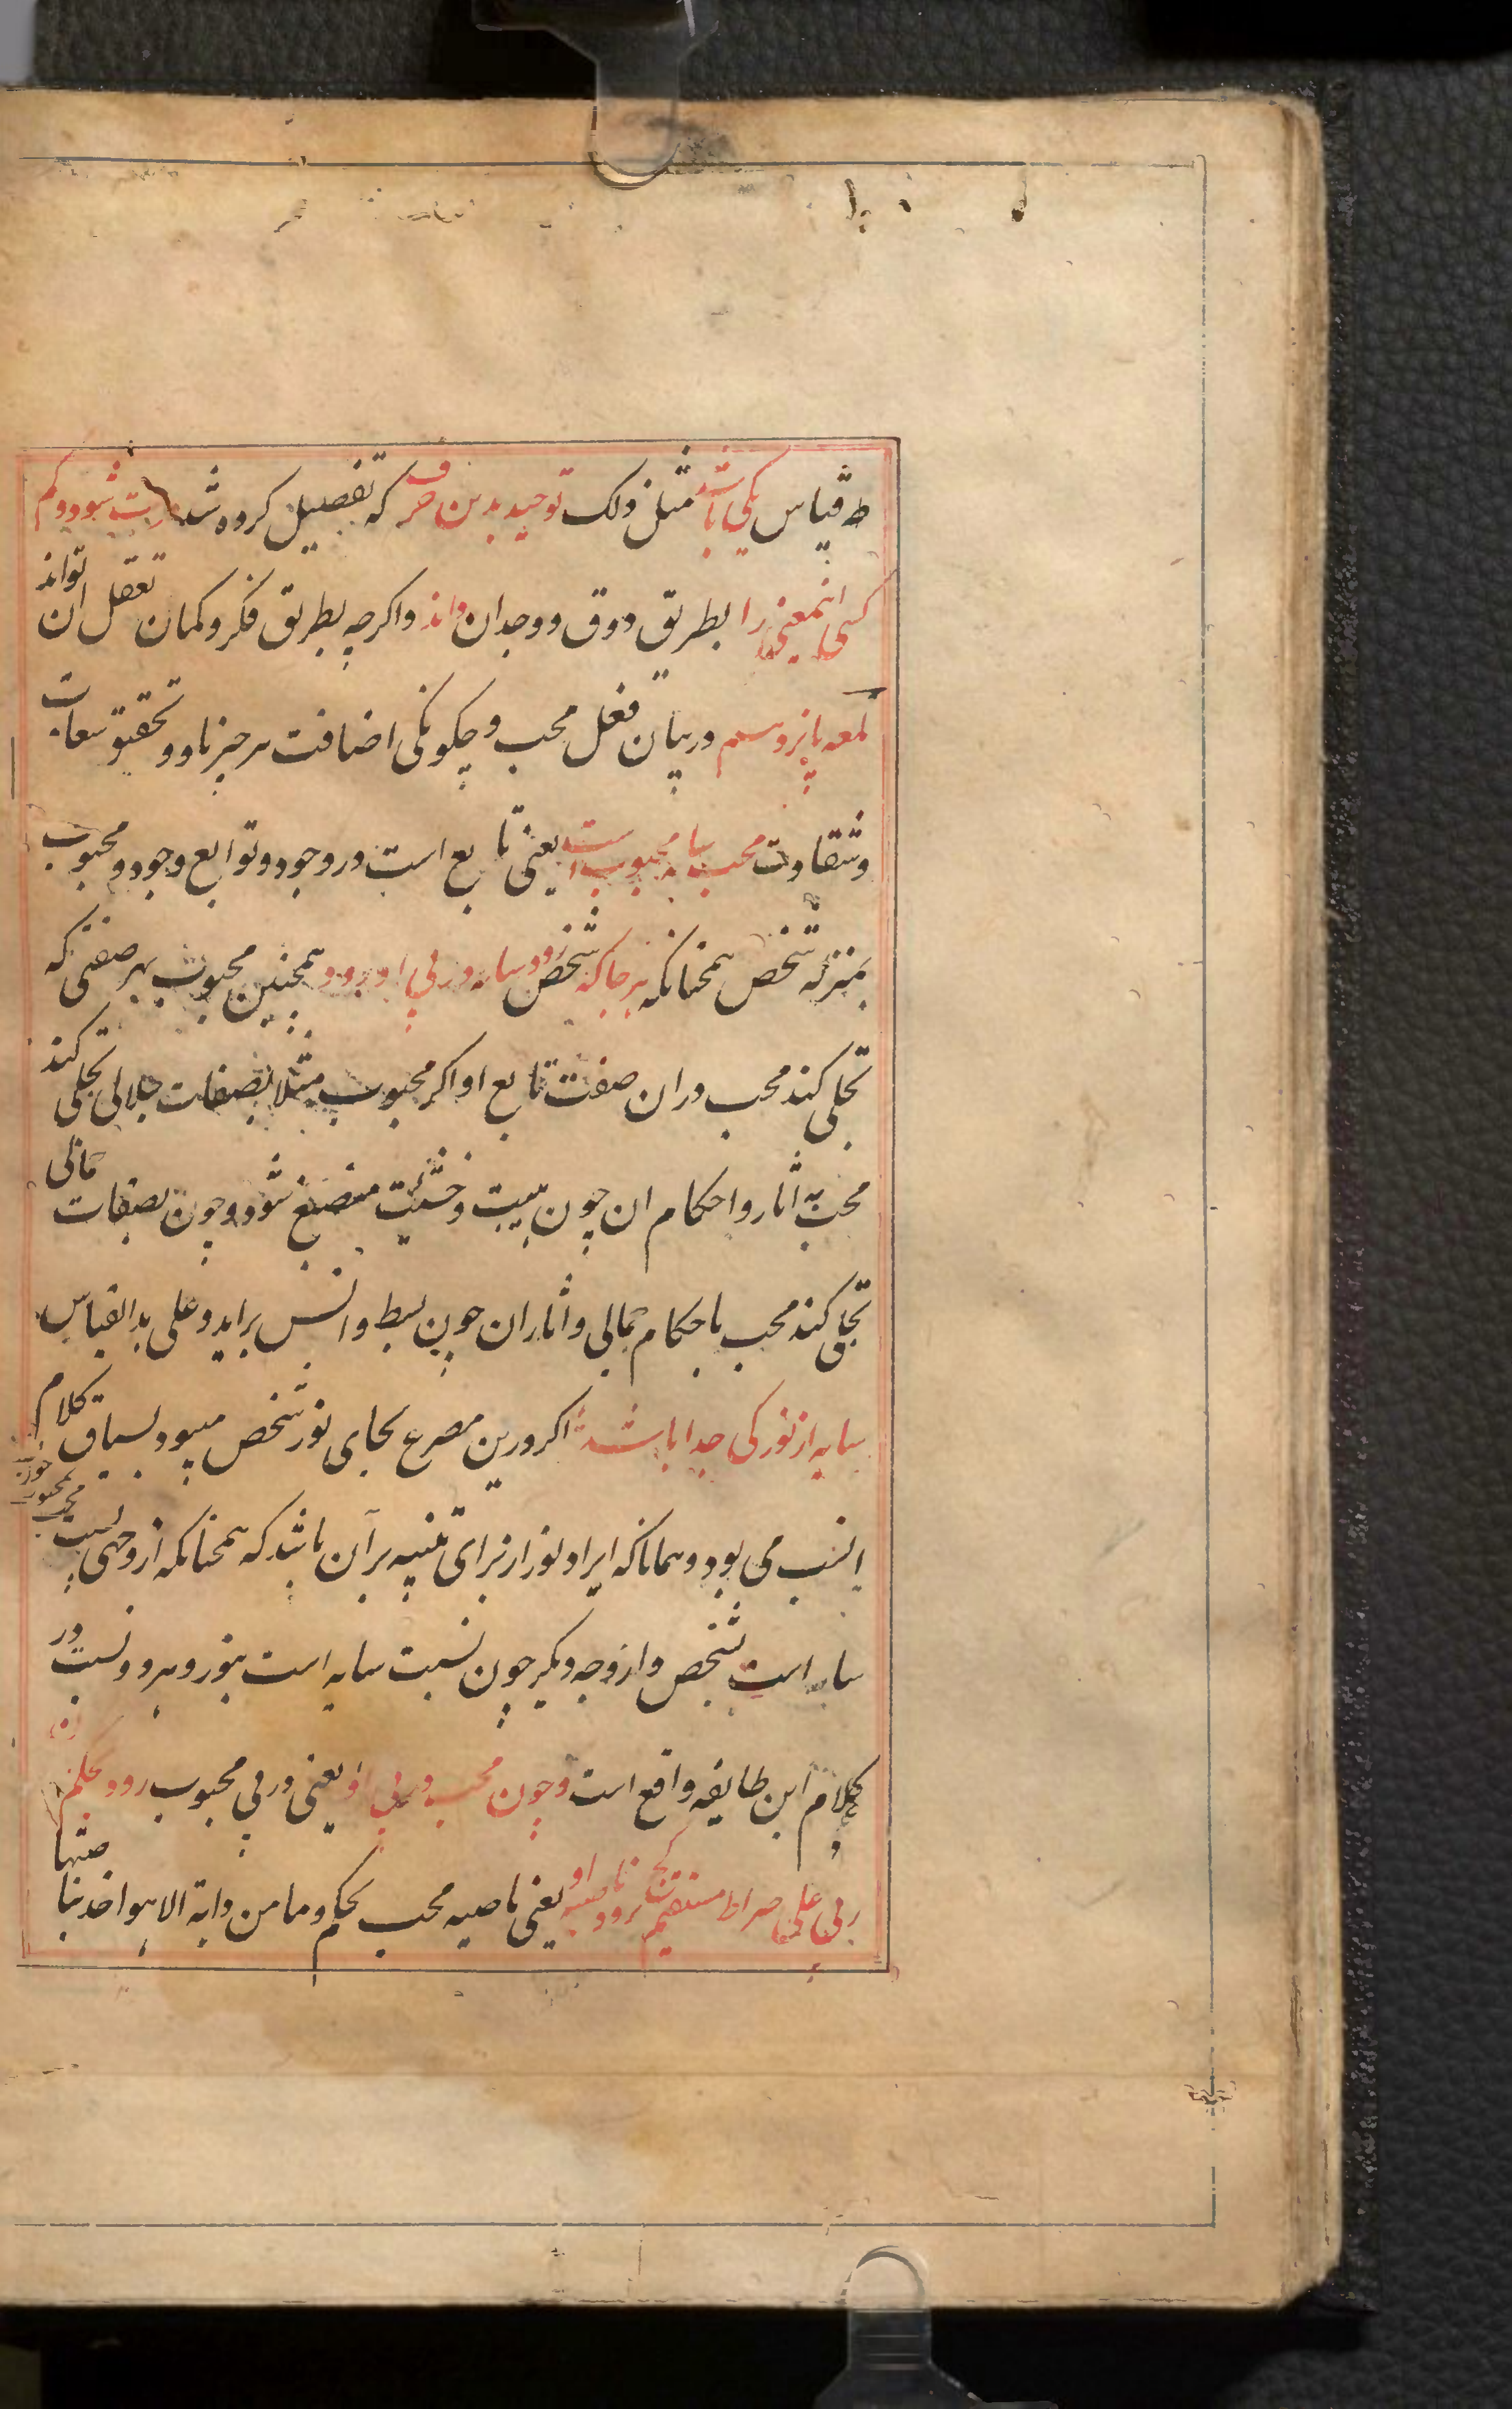 ط قیاس یکی باشد مثل ذلک توحید بدین حرف که تفصیل کرده شد راست شود و کم
کسی اینمعنی را بطریق ذوق و وجدان داند و اگرچه بطریق فکر و کمان تعقل ان تواند
لمعه پانزدهم در بیان فعل محب و چکونکی اضافت هر چیز باو و تحقیق سعادت
و شقاوت محب سایه محبوب است یعنی تابع است در وجود و توابع وجود و محبوب
بمنزله شخص همچنانکه هر جا که شخص رود سایه در پی او رود همچنین محبوب بهر صفتی که
تجلی کند محب در ان صفت تابع او اکر محبوب مثلا بصفات جلالی تجلی کند
محب به اثار و احکام ان چون هیبت و خشیت منصبغ شود و چون بصفات جمالی
تجلی کند محب باحکام جمالی و اثار ان چون بسط و انس براید و علی هذا القیاس
سایه از نور کی جدا باشد اکر درین مصرع بجای نور شخص میبود بسیاق کلام
انسب می بود و همانا که ایراد نور از برای تنبیه بر آن باشد که همچنانکه از وجهی نسبت محب بمحبوب چون
سایه است بشخص و از وجه دیکر چون نسبت سایه است بنور و هر دو نسبت در
کلام این طایفه واقع است و چون محب در پی او یعنی در پی محبوب رود بحکم ان
ربی علی صراط مستقیم کج نرود ناصیه او یعنی ناصیه محب بحکم و ما من دابة الا هو اخذ بناصیتها